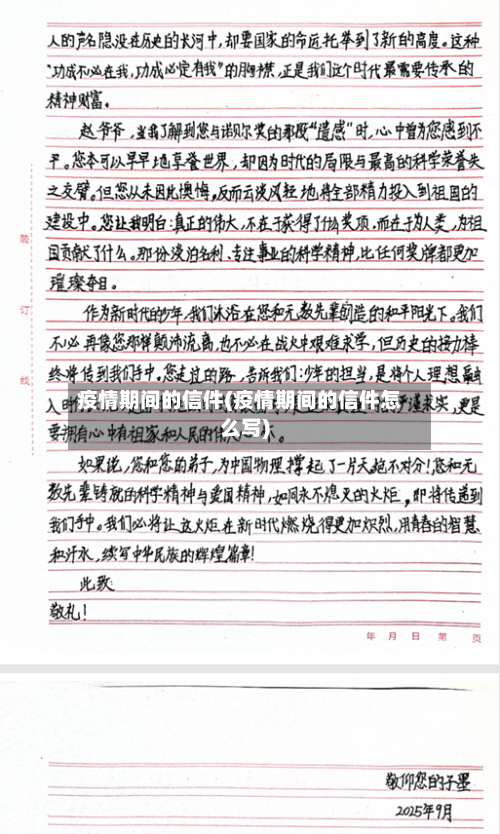 人的声名隐没在历史的长河中,却要国家的命运托举到了新的高度。这种
"功成不必在我,功成必定有我"的胸襟,正是我们这个时代最需要传承的
精神财富。
赵爷爷,当我了解到您与诺贝尔奖的那段"遗感"时,心中曾为您感到不
平。您本可以早早地享誉世界,却因为时代的局限与最高的科学荣誉失
之交臂。但您从未因此懊悔,反而云淡风轻地将全部精力投入到祖国的
建设中。您让我明白:真正的伟大,不在于获得了什么奖项,而在于为人类,为祖
国贡献了什么。那份淡泊名利、专注事业的科学精神,比任何奖牌都更加
璀璨夺目。
作为新时代的少年,我们沐浴在您和无数先辈创造的和平阳光下。我们
不必再像您那样颠沛流离,也不必在战火中艰难求学,但历史的接力棒
终将传到我们手中。您走过的路,告诉我们:少年的担当,是将个人理想融
入时
严谨求实,更是
疫情期间的信件(疫情期间的信件怎
么写)
要拥有心中有祖家和人民的
如果说,您和您的弟子,为中国物理撑起了一片天绝不对分!您和无
数先辈铸就的科学精神与爱国精神,如同永不熄灭的火炬,即将传递到
我们手中。我们必将让这火炬在新时代燃烧得更加炽烈,用青春的智慧
和汗水,续写中华民族的辉煌篇章!
此致
敬礼!
装
订
线
年 月 日 第 页
敬仰您的子墨
2025年9月